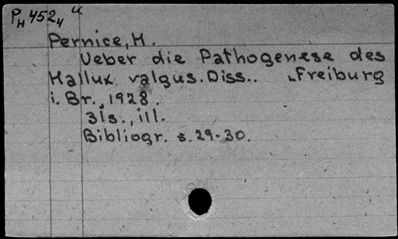 PH 4524 u
Pernice, H.
Ueber die Pathogenese des
Hallux valgus. Diss.. Freiburg
i. Br., 1928.
31s., ill.
Bibliogr. s. 29-30.